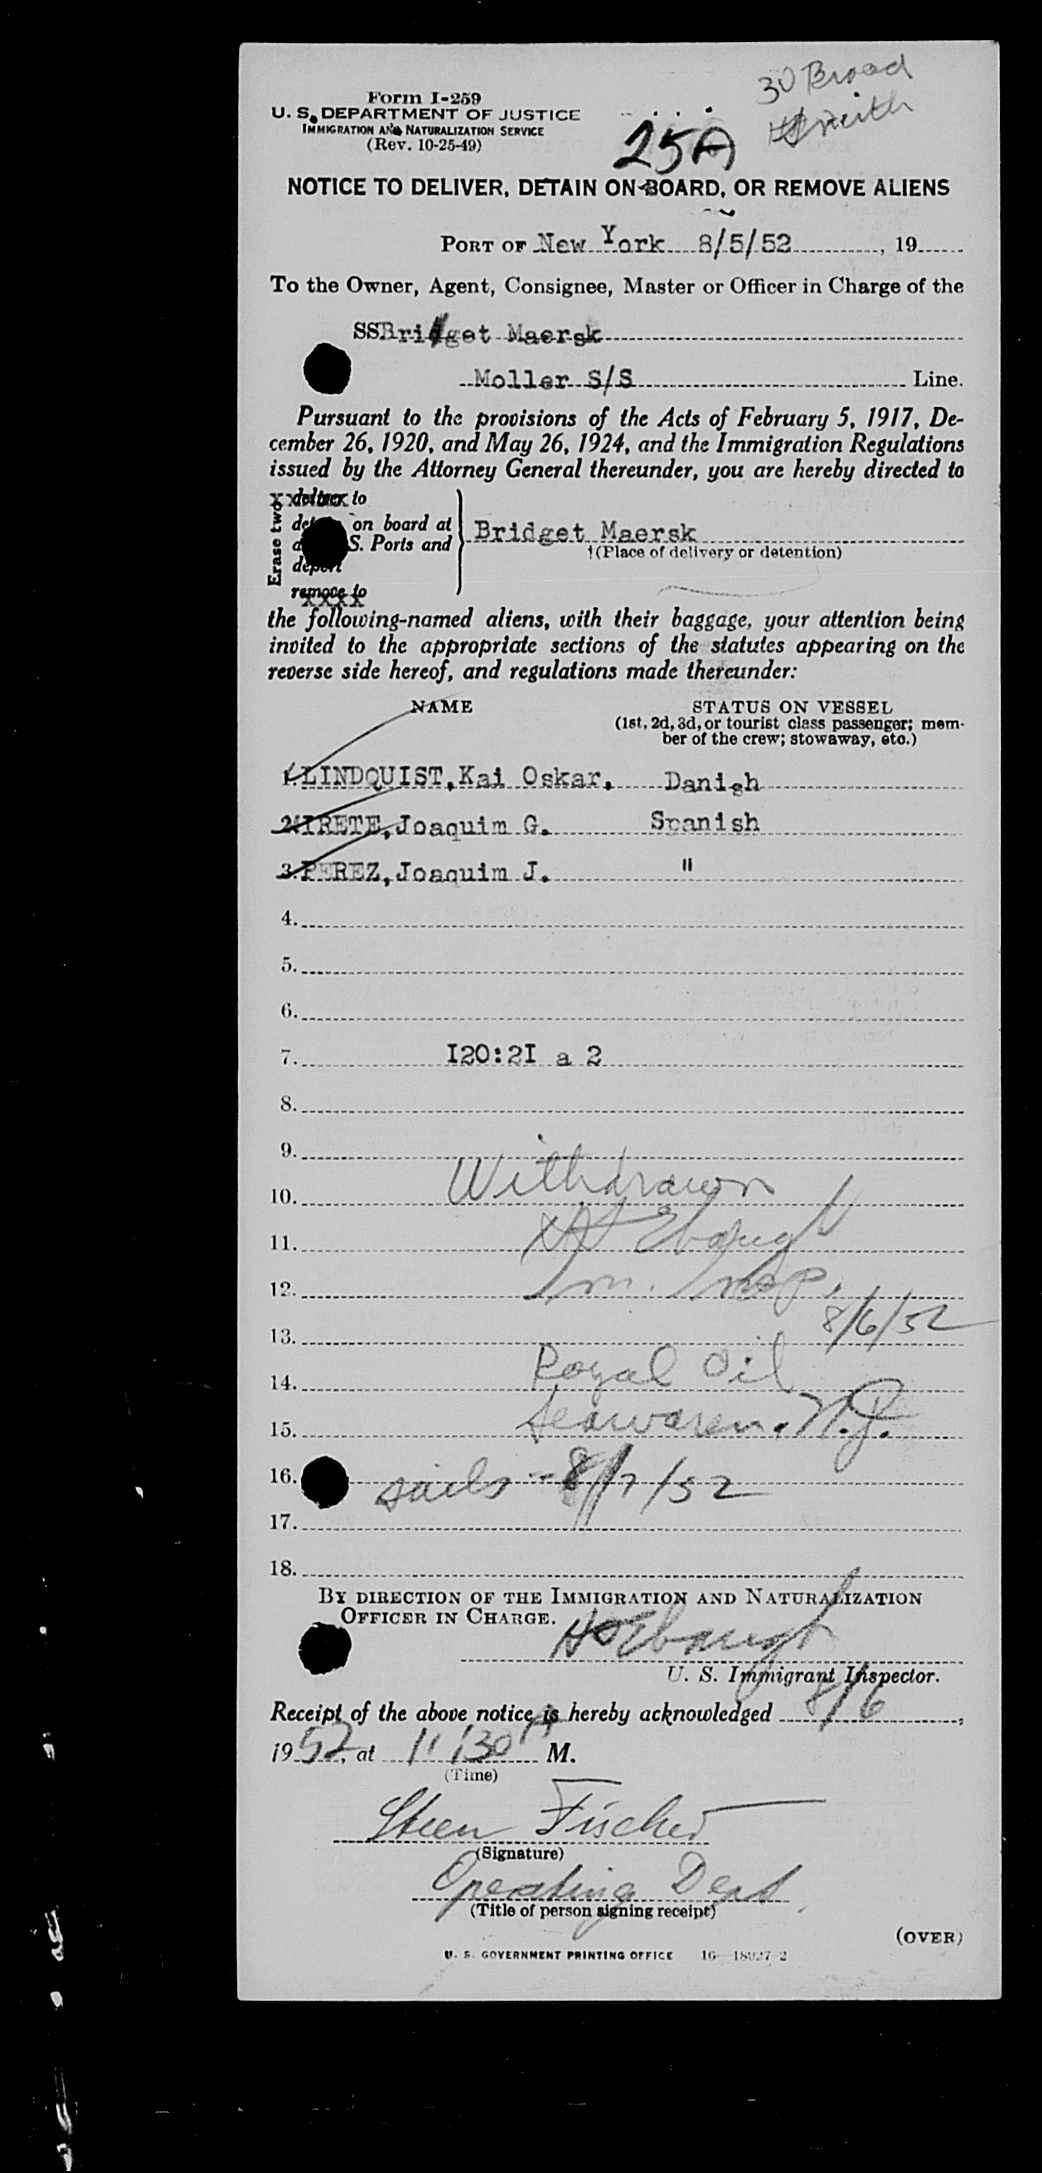 30 Broad
Form I-259
U. S. DEPARTMENT OF JUSTICE
IMMIGRATION AND NATURALIZATION SERVICE
(Rev. 10-25-49)
25A
NOTICE TO DELIVER, DETAIN ON BOARD, OR REMOVE ALIENS
PORT OF New York 8/5/52, 19
To the Owner, Agent, Consignee, Master or Officer in Charge of the
SSBridget Maersk
Moller S/S Line.
Pursuant to the provisions of the Acts of February 5, 1917, De-
cember 26, 1920, and May 26, 1924, and the Immigration Regulations
issued by the Attorney General thereunder, you are hereby directed to
Erase two
deliver to
on board at
S. Ports and
deport
remove to
Bridget Maersk
†(Place of delivery or detention)
the following-named aliens, with their baggage, your attention being
invited to the appropriate sections of the statutes appearing on the
reverse side hereof, and regulations made thereunder:
NAME STATUS ON VESSEL
(1st, 2d, 3d, or tourist class passenger; mem-
ber of the crew; stowaway, etc.)
1. LINDQUIST, Kai Oskar. Danish
2. MIRETE, Joaquim G. Spanish
3. PEREZ, Joaquim J. "
4.
5.
6.
7. I20:2I a 2
8.
9.
10. Withdrawn
11. Ebaugh
12. Im. Insp.
13. 8/6/52
14. Royal Oil
15. Sewaren, N.J.
16. sails - 8/7/52
17.
18.
BY DIRECTION OF THE IMMIGRATION AND NATURALIZATION
OFFICER IN CHARGE.
Ebaugh
U. S. Immigrant Inspector.
Receipt of the above notice is hereby acknowledged 8/6,
1952, at 11:30 A M.
(Time)
Steen Fischer
(Signature)
Operating Dept.
(Title of person signing receipt)
(OVER)
U. S. GOVERNMENT PRINTING OFFICE 16—18927-2